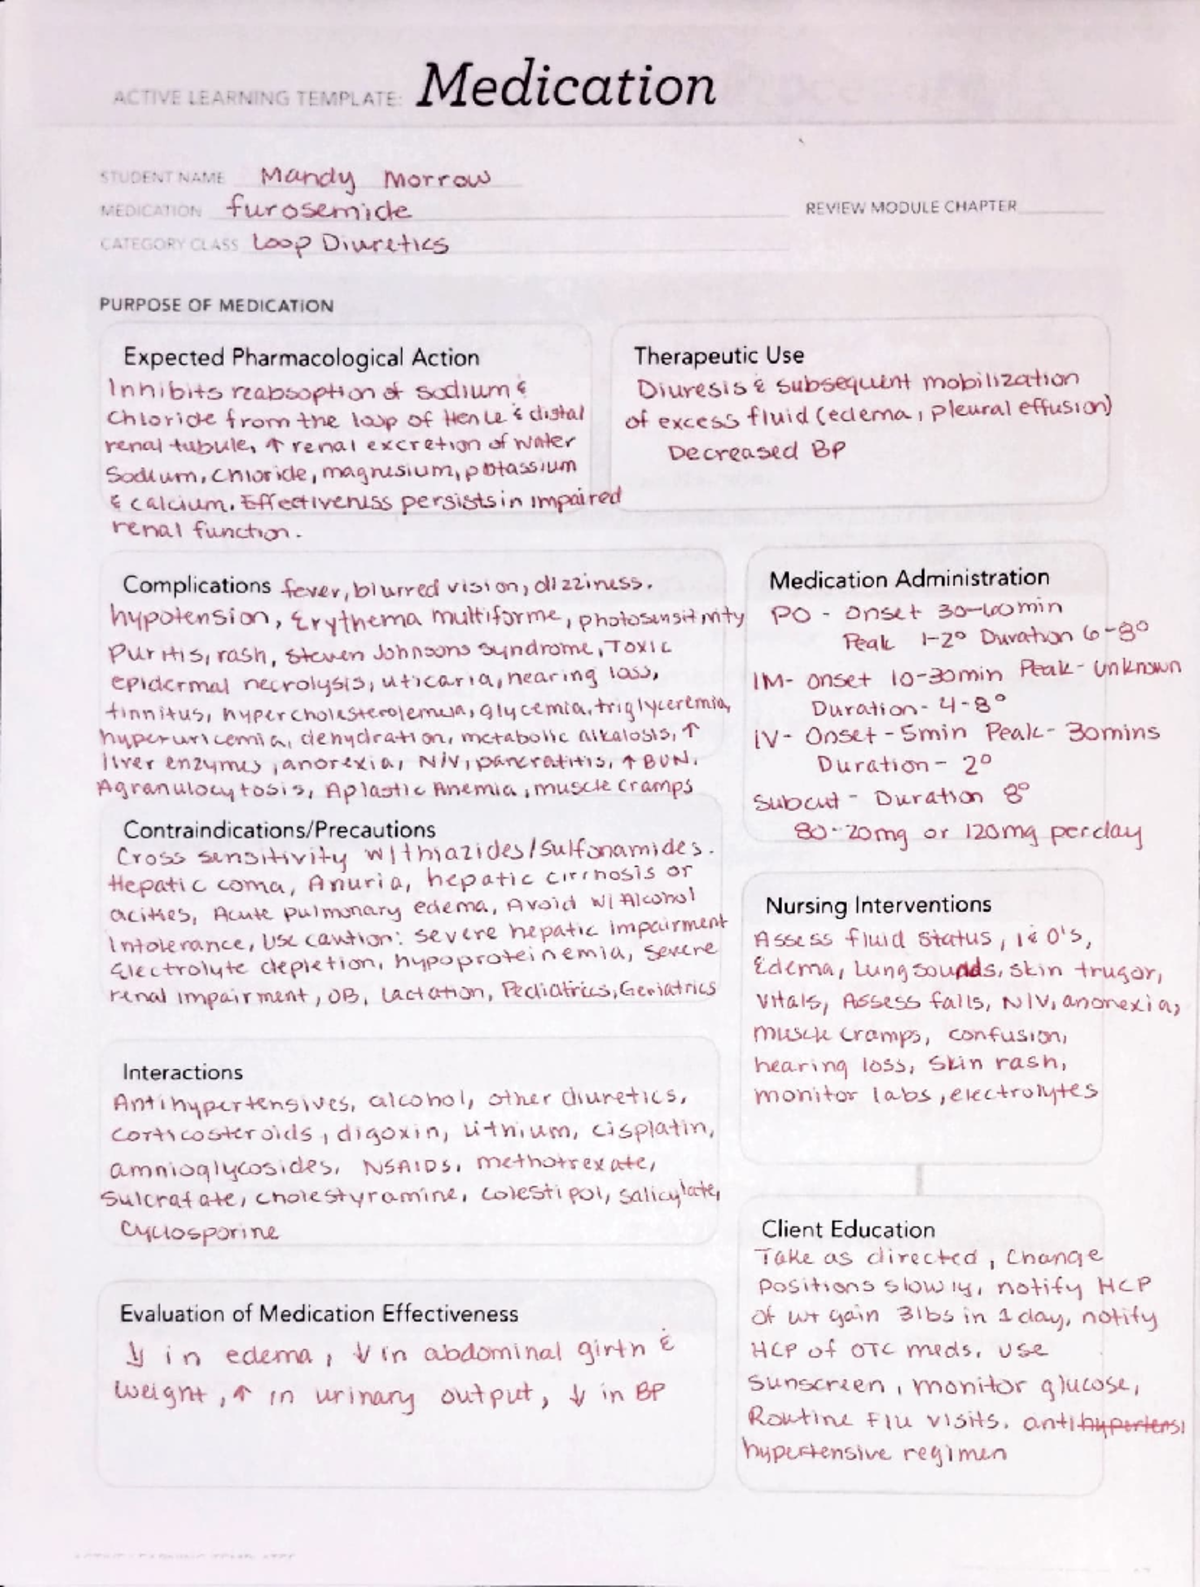 ACTIVE LEARNING TEMPLATE: Medication
STUDENT NAME Mandy Morrow
MEDICATION furosemide
REVIEW MODULE CHAPTER
CATEGORY CLASS Loop Diuretics
PURPOSE OF MEDICATION
Expected Pharmacological Action
Inhibits reabsoption of sodium &
Chloride from the loop of Henle & distal
renal tubule, ↑ renal excretion of water
Sodium, Chloride, magnesium, potassium
& calcium. Effectiveness persists in impaired
renal function.
Therapeutic Use
Diuresis & subsequent mobilization
of excess fluid (edema, pleural effusion)
Decreased BP
Complications fever, blurred vision, dizziness.
hypotension, Erythema multiforme, photosensitivity
Puritis, rash, Steven Johnsons Syndrome, Toxic
epidermal necrolysis, uticaria, hearing loss,
tinnitus, hypercholesterolemia, glycemia, triglyceremia,
hyperuricemia, dehydration, metabolic alkalosis, ↑
liver enzymes, anorexia, N/V, pancratitis, ↑ BUN.
Agranulocytosis, Aplastic Anemia, muscle cramps
Medication Administration
PO - Onset 30-60min
Peak 1-2° Duration 6-8°
IM- onset 10-30min Peak- unknown
Duration- 4-8°
IV- Onset - 5min Peak- 30mins
Duration- 2°
Subcut - Duration 8°
80-20mg or 120mg per day
Contraindications/Precautions
Cross sensitivity w/thiazides/sulfonamides.
Hepatic coma, Anuria, hepatic cirrhosis or
acities, Acute pulmonary edema, Avoid w/ Alcohol
Intolerance, Use caution: severe hepatic impairment
Electrolyte depletion, hypoproteinemia, Severe
renal impairment, OB, Lactation, Pediatrics, Geriatrics
Nursing Interventions
Assess fluid status, I & O's,
Edema, Lung sounds, skin trugor,
Vitals, Assess falls, N/V, anorexia,
muscle cramps, confusion,
hearing loss, skin rash,
monitor labs, electrolytes
Interactions
Antihypertensives, alcohol, other diuretics,
corticosteroids, digoxin, Lithium, cisplatin,
amnioglycosides, NSAIDS, methotrexate,
Sulcrafate, cholestyramine, colestipol, salicylate,
Cyclosporine
Client Education
Take as directed, Change
Positions slowly, notify HCP
of wt gain 3lbs in 1 day, notify
HCP of OTC meds. use
sunscreen, monitor glucose,
Routine F/U visits. antihypertensi
hypertensive regimen
Evaluation of Medication Effectiveness
↓ in edema, ↓ in abdominal girth &
weight, ↑ in urinary output, ↓ in BP